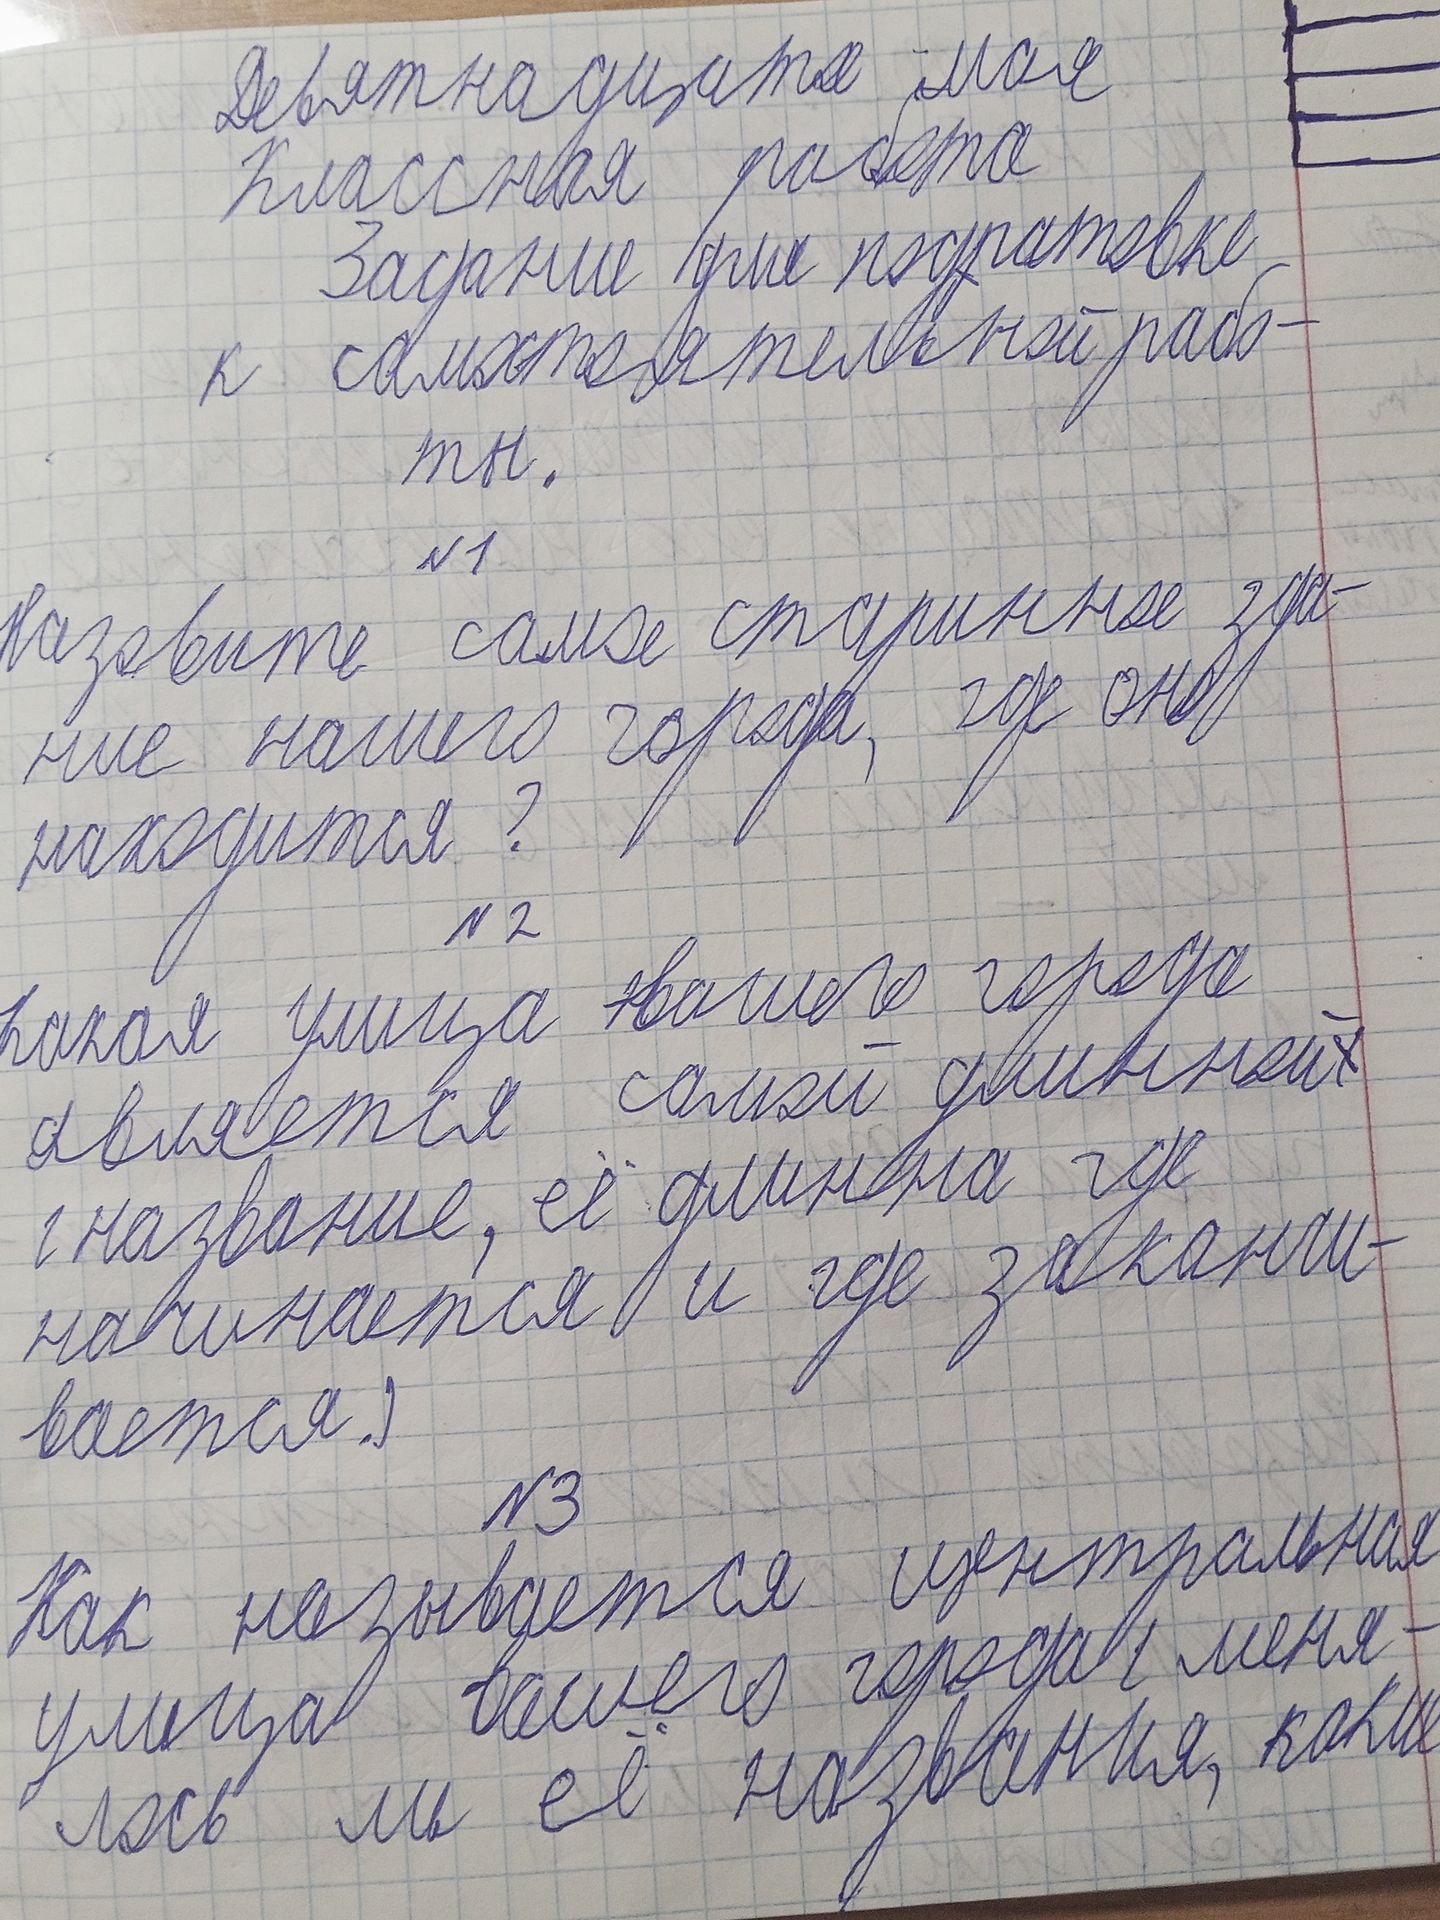 Девятнадцатя мая
Классная работа
Задание для подготовке
к самостоятельной рабо-
ты.
№1
Назовите самое старинное зда-
ние нашего города, где оно
находится?
№2
Какая улица вашего города
является самой длинной
(название, её длинна где
начинается и где заканчи-
вается.)
№3
Как называется центральная
улица вашего города( меня-
лось ли её названия, какие